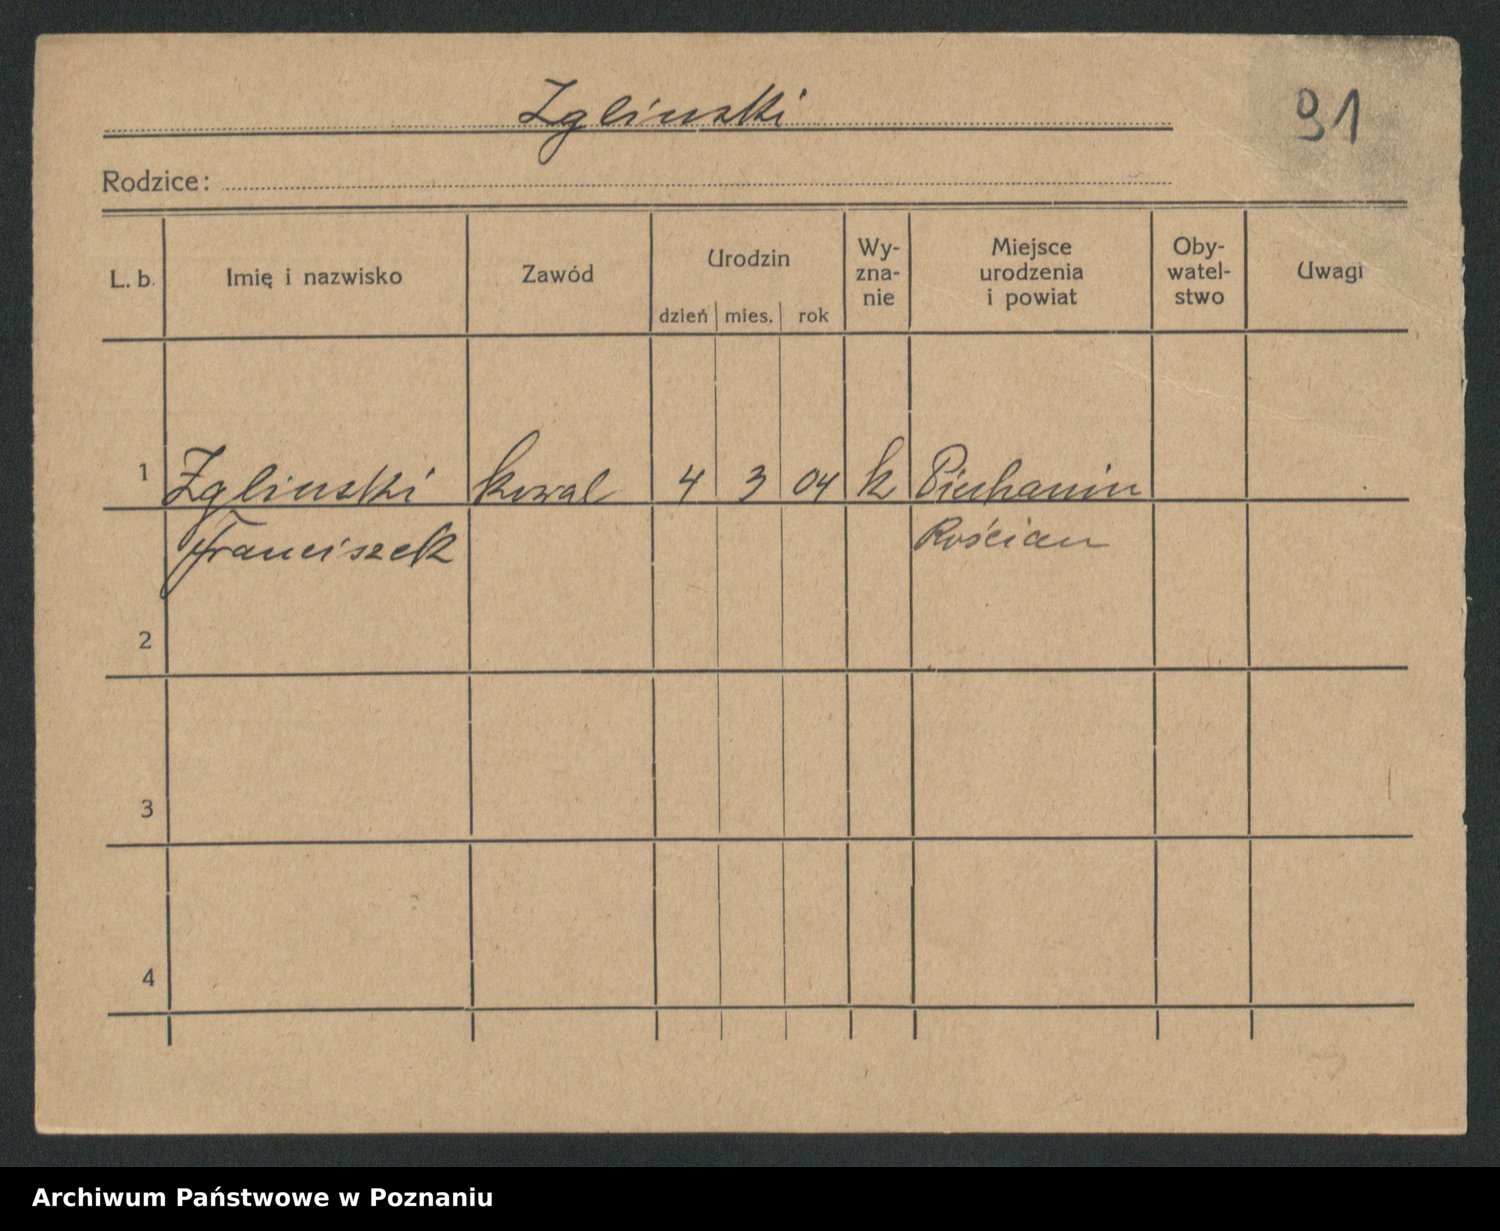 Zglinski
91
Rodzice:
L. b. Imię i nazwisko Zawód Urodzin Wy-zna-nie Miejsce urodzenia i powiat Oby-watel-stwo Uwagi
dzień mies. rok
1 Zglinski kowal 4 3 04 k Piechanin
Franciszek Kościan
2
3
4
Archiwum Państwowe w Poznaniu